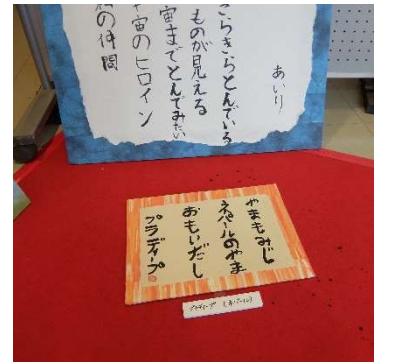 あいり
きらきらとんでいる
ものが見える
宙までとんでみたい
宇宙のヒロイン
の仲間
やまもみじ
ネパールのやま
おもいだし
プラディープ
プラディープ（ネパール）